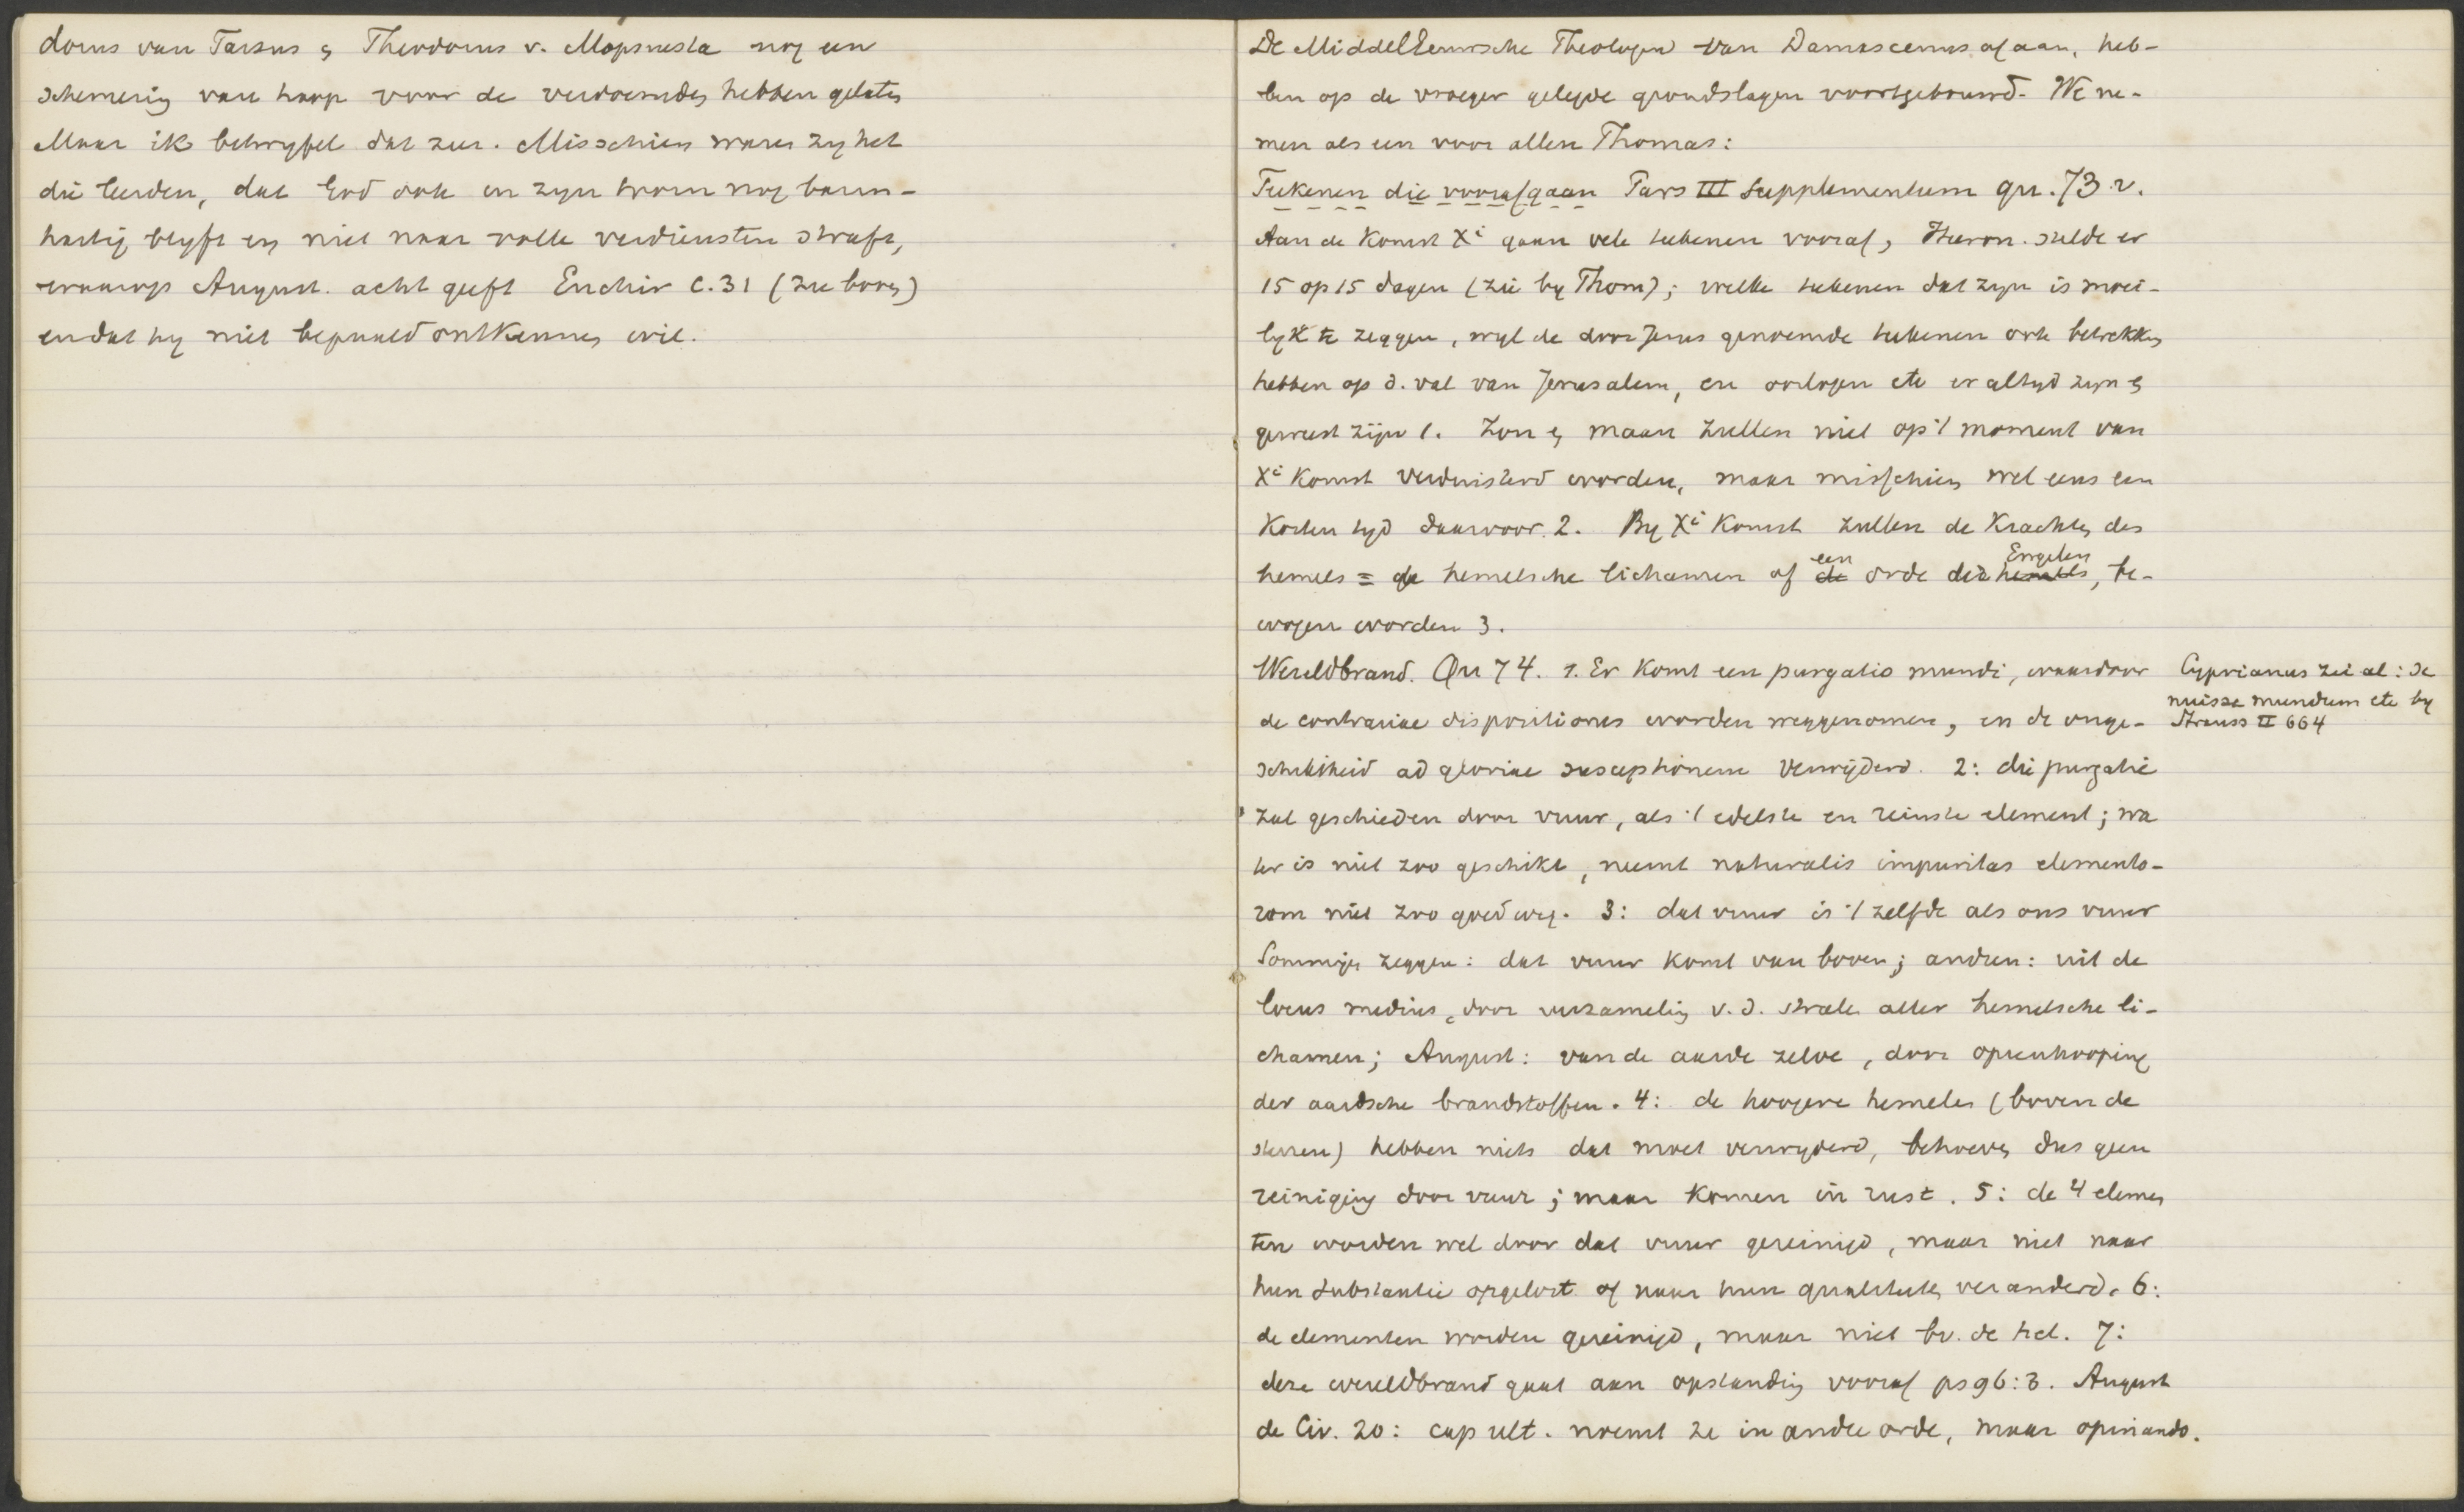 dorus van Tarsus en Theodorus v. Mopsuesta nog een
schemering van hoop voor de verdoemden hebben gelaten
Maar ik betwyfel dat zeer. Misschien waren zy het
die leerden, dat God ook in zyn toorn nog barm-
hartig blyft en niet naar volle verdiensten straft,
waarop August. acht geeft Enchir C. 31 (zie boven)
en dat hy niet bepaald ontkennen wil.
De Middeleeuwsche Theologen van Damascenus af aan, heb-
ben op de vroeger gelegde grondslagen voortgebouwd. We ne-
men als een voor allen Thomas:
Teekenen die voorafgaan Pars III Supplementum qu. 73 v.
Aan de komst Xi gaan vele teekenen vooraf, Hieron. stelde er
15 op 15 dagen (zie by Thom); welke teekenen dat zyn is moei-
lyk te zeggen, wyl de door Jezus genoemde teekenen ook betrekking
hebben op d. val van Jerusalem, en oorlogen etc er altyd zyn en
geweest zijn 1. Zon en maan zullen niet op 't moment van
Xi komst verduisterd worden, maar misschien wel eens een
korten tyd daarvoor. 2. By Xi komst zullen de krachten des
hemels = de hemelsche lichamen of een orde der Engelen, be-
wogen worden 3.
Wereldbrand. Qu 74. 1. Er komt een purgatio mundi, waardoor
de contrariae dispositiones worden weggenomen, en de onge-
schiktheid ad gloriae susceptionem verwijderd. 2: die purgatie
zal geschieden door vuur, als 't edelste en reinste element; wa
ter is niet zoo geschikt, neemt naturalis impuritas elemento-
rum niet zoo goed weg. 3: dat vuur is 't zelfde als ons vuur
Sommigen zeggen: dat vuur komt van boven; andren: uit de
locus medius, door verzameling v. d. stralen aller hemelsche li-
chamen; August: van de aarde zelve, door opeenhooping
der aardsche brandstoffen. 4: de hoogere hemelen (boven de
sterren) hebben niets dat moet verwyderd, behoeven dus geen
reiniging door vuur; maar komen in rust. 5: de 4 elemen
ten worden wel door dat vuur gereinigd, maar niet naar
hun substantie opgelost of naar hun qualiteiten veranderd. 6:
de elementen worden gereinigd, maar niet bv. de hel. 7:
deze wereldbrand gaat aan opstanding vooraf ps 96:3. August
de Civ. 20: cap ult. noemt ze in andre orde, maar opinando.
Cyprianus zei al: se
nuisse mundum etc by
Strauss II 664